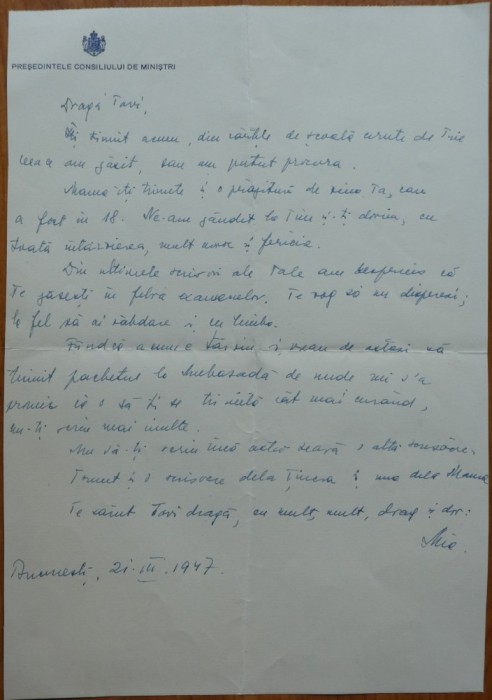 PREȘEDINTELE CONSILIULUI DE MINIȘTRI
Dragă Tovi,
Îți trimit acum, din cărțile de școală cerute de Tine
ceea am găsit, sau am putut procura.
Mama îți trimete și o prăjitură de ziua Ta, care
a fost în 18. Ne-am gândit la Tine și-ți dorim, cu
toată întârzierea, mult noroc și fericire.
Din ultimele scrisori ale Tale am desprins că
Te găsești în febra examenelor. Te rog să nu disperezi;
la fel să ai răbdare și cu limba.
Fiindcă acum e târziu și vreau de astăzi să
trimit pachetul la Ambasadă de unde mi s'a
promis că o să Ți se trimită cât mai curând,
nu-ți scriu mai multe.
Am să-ți scriu încă astă seară o altă scrisoare.
Trimit și o scrisoare dela și una dela Mama
Te sărut Tovi dragă, cu mult, mult, drag și dor:
Mia.
București, 21.III.1947.